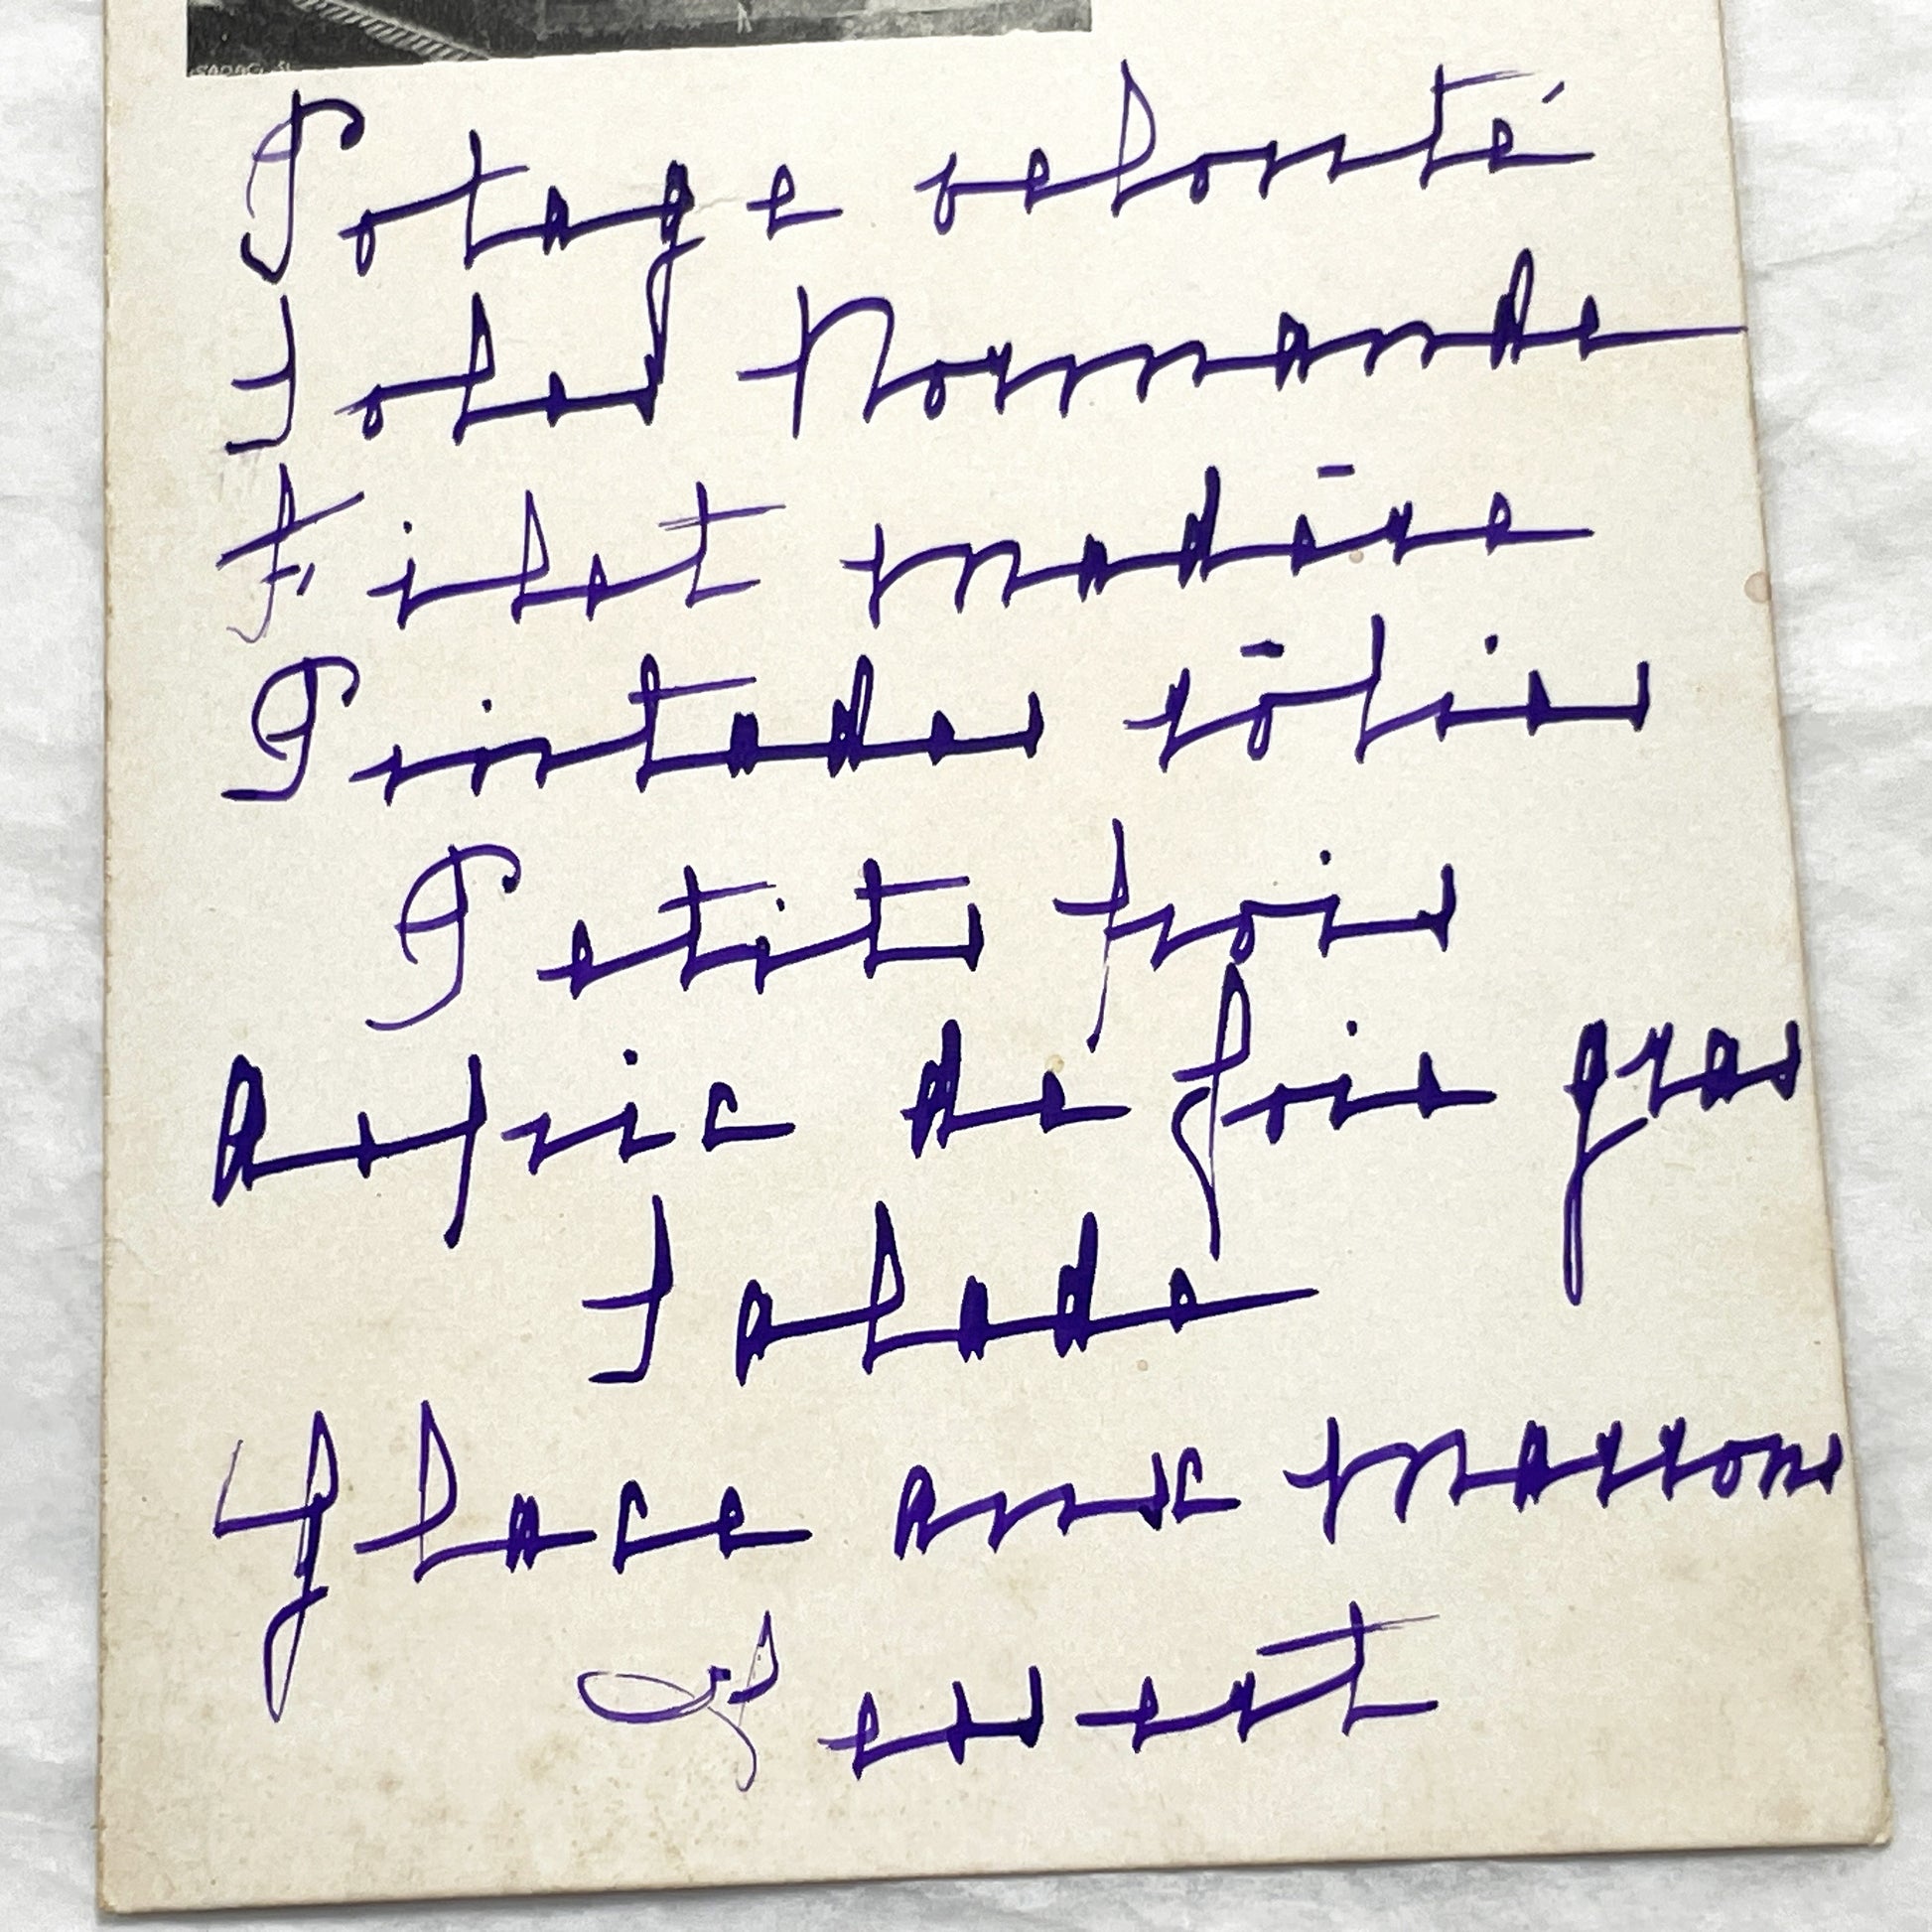 SADAG
Potage velouté
Soles Normande
Filet madère
Pintades rôties
Petits pois
Aspic de foie gras
Salade
Glace aux marrons
Dessert